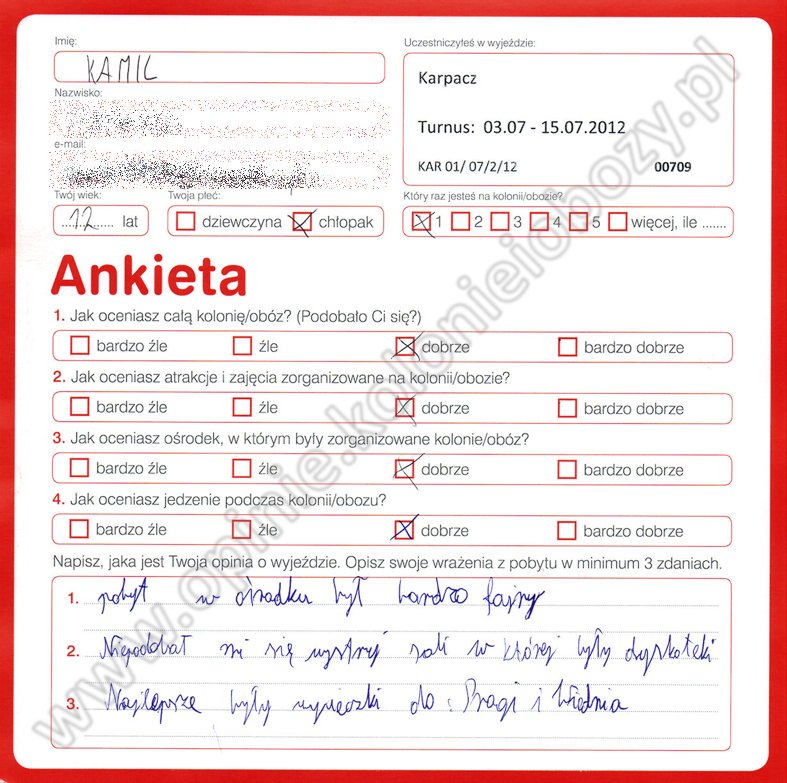 Imię:
KAMIL
Nazwisko:
e-mail:
Twój wiek:
12 lat
Twoja płeć:
dziewczyna chłopak
Uczestniczyłeś w wyjeździe:
Karpacz
Turnus: 03.07 - 15.07.2012
KAR 01/ 07/2/12 00709
Który raz jesteś na kolonii/obozie?
1 2 3 4 5 więcej, ile .......
Ankieta
1. Jak oceniasz całą kolonię/obóz? (Podobało Ci się?)
bardzo źle źle dobrze bardzo dobrze
2. Jak oceniasz atrakcje i zajęcia zorganizowane na kolonii/obozie?
bardzo źle źle dobrze bardzo dobrze
3. Jak oceniasz ośrodek, w którym były zorganizowane kolonie/obóz?
bardzo źle źle dobrze bardzo dobrze
4. Jak oceniasz jedzenie podczas kolonii/obozu?
bardzo źle źle dobrze bardzo dobrze
Napisz, jaka jest Twoja opinia o wyjeździe. Opisz swoje wrażenia z pobytu w minimum 3 zdaniach.
1. pobyt w ośrodku był bardzo fajny
2. Niepodobał mi się wystrój sali w której były dyskoteki
3. Najlepsze były wycieczki do: Pragi i Wiednia
www.opinie.kolonieiobozy.pl